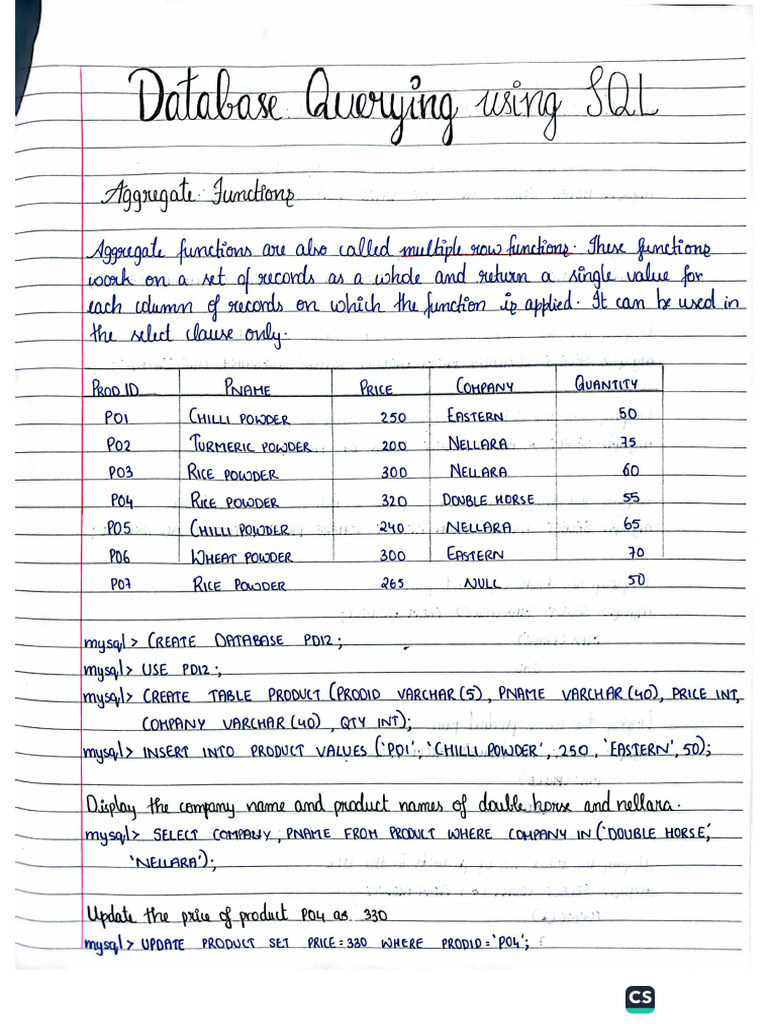 Database Querying using SQL
Aggregate Functions
Aggregate functions are also called multiple row functions. These functions
work on a set of records as a whole and return a single value for
each column of records on which the function is applied. It can be used in
the select clause only.
PROD ID PNAME PRICE COMPANY QUANTITY
P01 CHILLI POWDER 250 EASTERN 50
P02 TURMERIC POWDER 200 NELLARA 75
P03 RICE POWDER 300 NELLARA 60
P04 RICE POWDER 320 DOUBLE HORSE 55
P05 CHILLI POWDER 240 NELLARA 65
P06 WHEAT POWDER 300 EASTERN 70
P07 RICE POWDER 265 NULL 50
mysql> CREATE DATABASE PD12;
mysql> USE PD12;
mysql> CREATE TABLE PRODUCT (PRODID VARCHAR(5), PNAME VARCHAR(40), PRICE INT,
COMPANY VARCHAR(40), QTY INT);
mysql> INSERT INTO PRODUCT VALUES ('P01', 'CHILLI POWDER', 250, 'EASTERN', 50);
Display the company name and product names of double horse and nellara.
mysql> SELECT COMPANY, PNAME FROM PRODUCT WHERE COMPANY IN ('DOUBLE HORSE',
'NELLARA');
Update the price of product P04 as 330
mysql> UPDATE PRODUCT SET PRICE=330 WHERE PRODID='P04';
CS